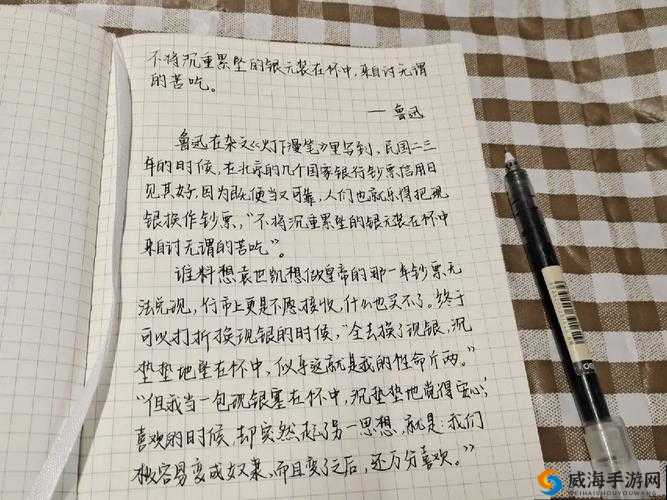 不将沉重累坠的银元装在怀中,来自讨无谓
的苦吃。
——鲁迅
鲁迅在杂文《灯下漫笔》里写到,民国二三
年的时候,在北京的几个国家银行钞票信用日
见其好,因为既便当又可靠,人们也就乐得把现
银换作钞票,“不将沉重累坠的银元装在怀中
来自讨无谓的苦吃”。
谁料想袁世凯想做皇帝的那一年钞票无
法兑现,行市上更是不愿接收,什么也买不了。终于
可以打折换现银的时候,“全去换了现银,沉
垫垫地坠在怀中,似乎这就是我的性命斤两。”
“但我当一包现银塞在怀中,沉垫垫地觉得安心,
喜欢的时候,却突然起了另一思想,就是:我们
极容易变成奴隶,而且变了之后,还万分喜欢。”
威海手游网
WEIHAISHOUYOUWANG